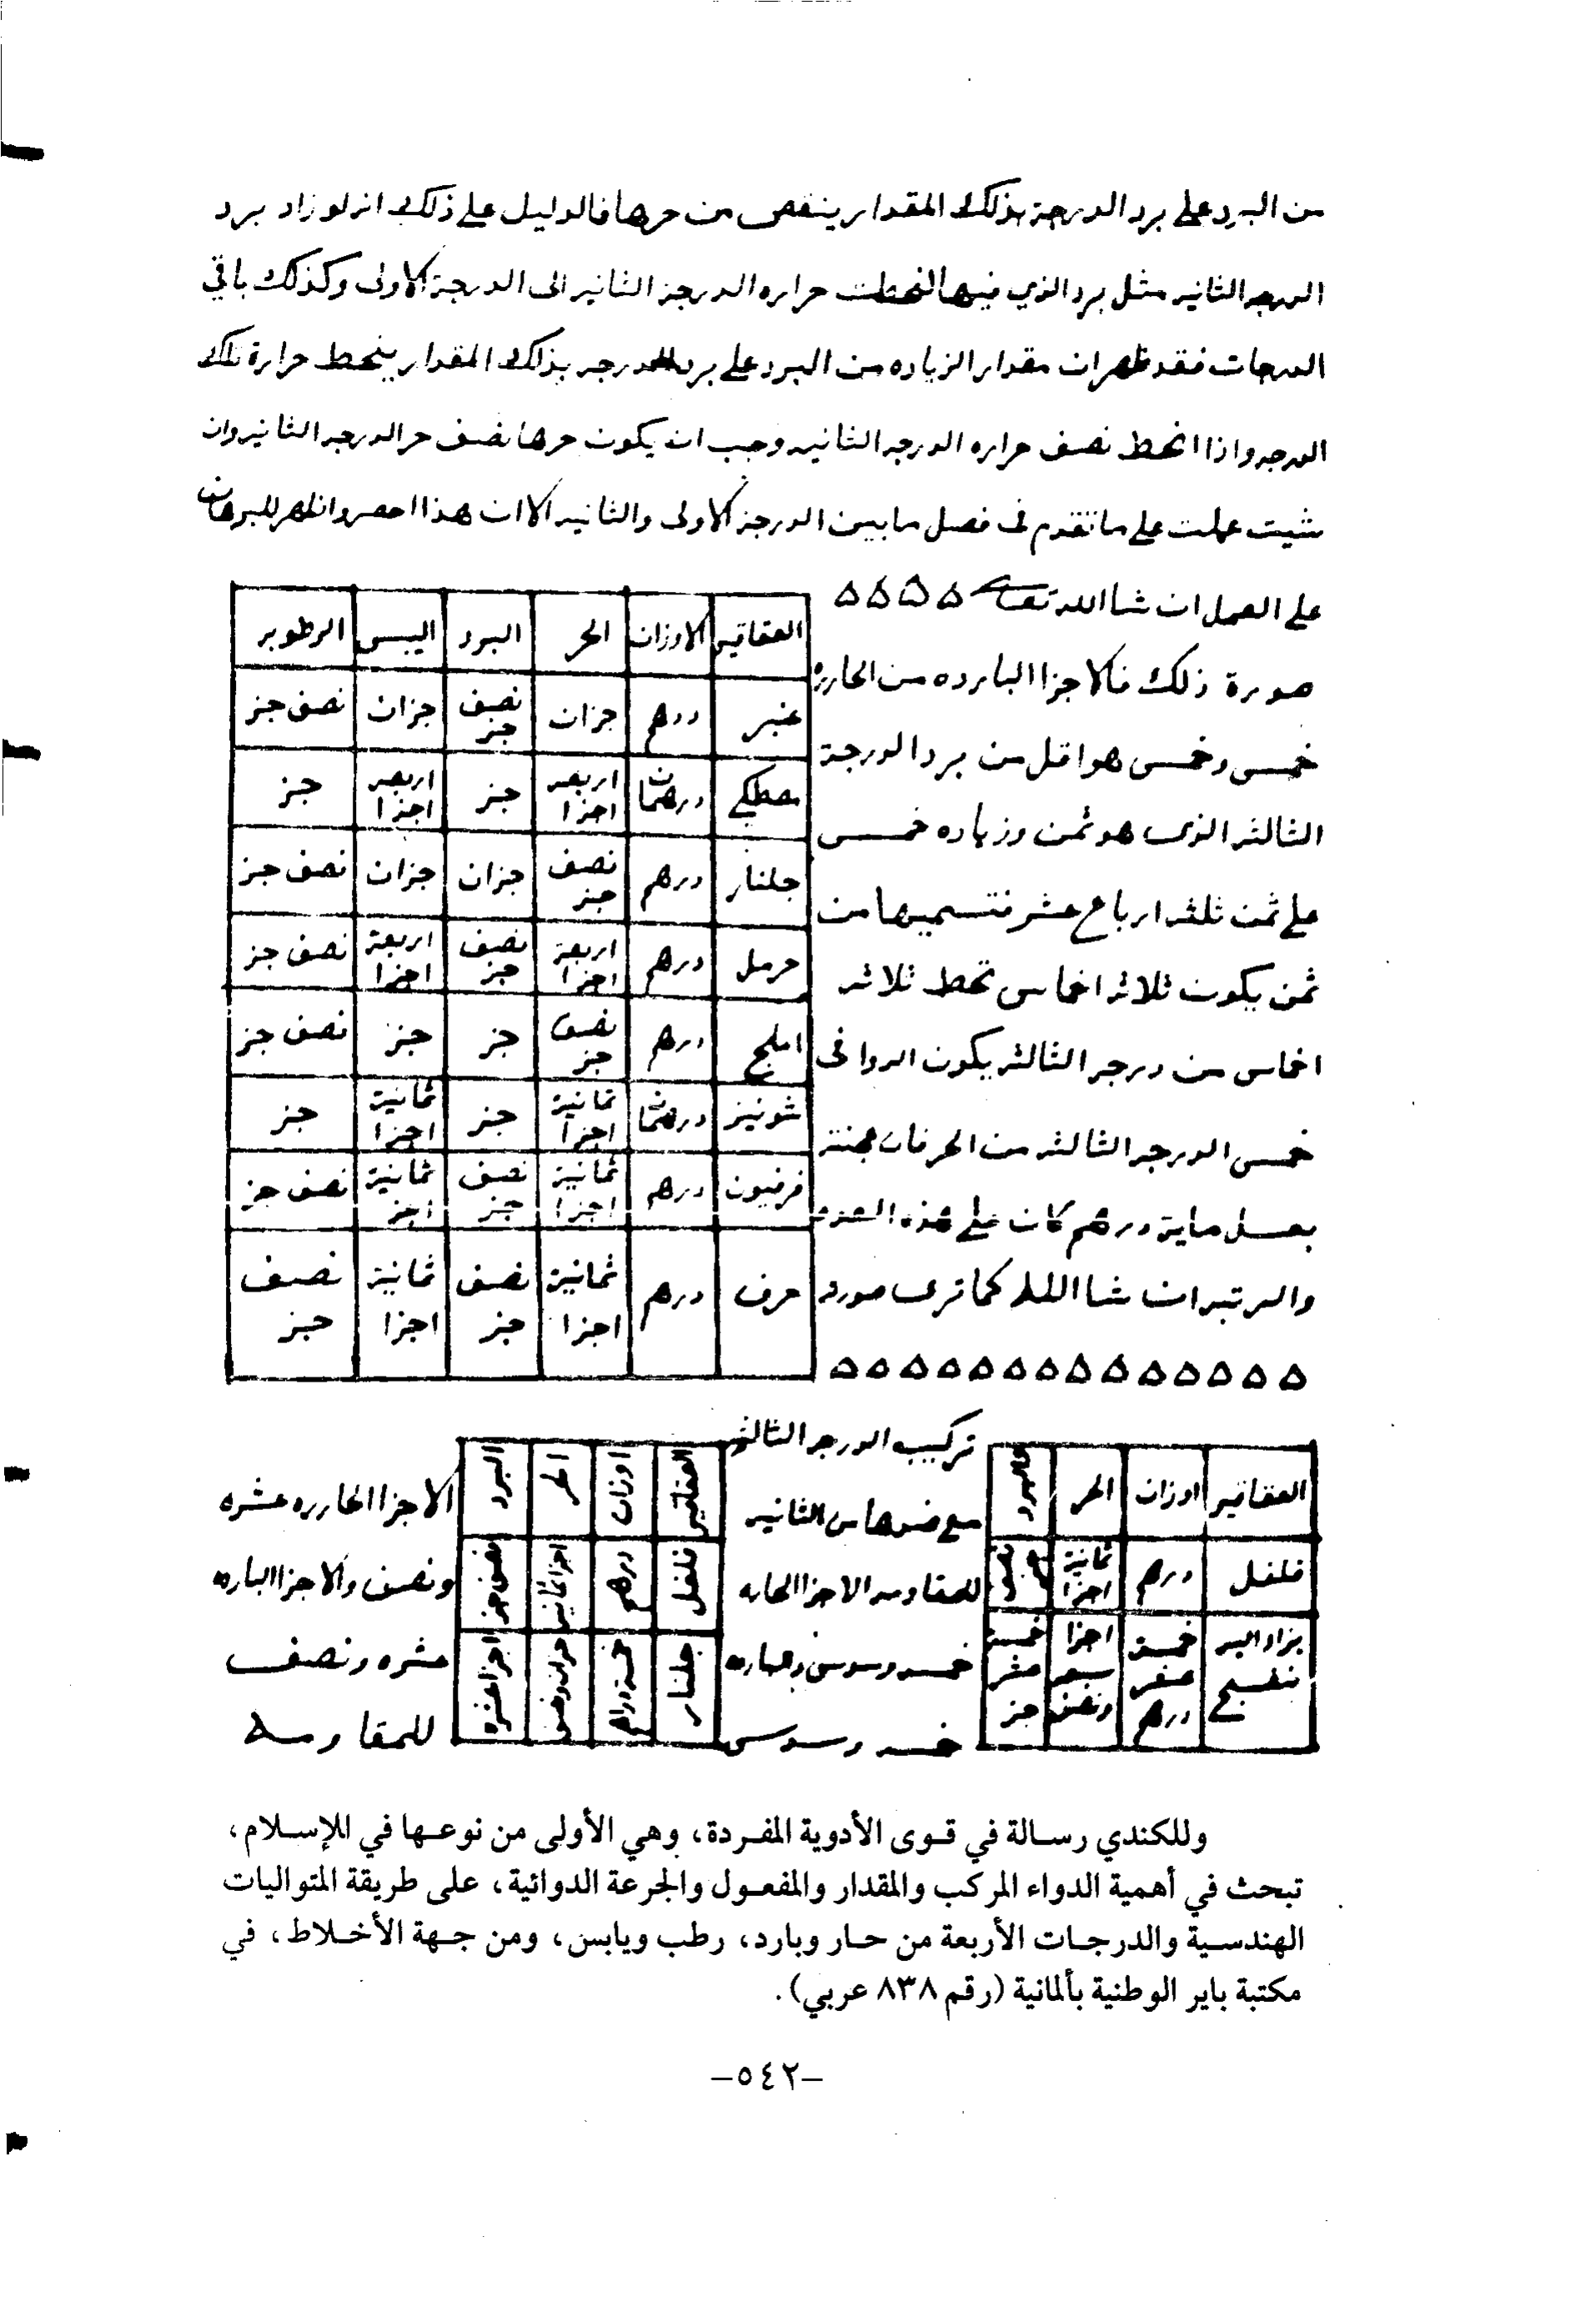 من البرد على برد الدرجة بذلك المقدار ينقص من حرها فالدليل على ذلك انه لو زاد برد
الدرجه الثانيه مثل برد الذي فيها انحطت حراره الدرجة الثانيه الى الدرجة الاولى وكذلك باقي
الدرجات فقد ظهر ان مقدار الزياده من البرد على برد الدرجه بذلك المقدار ينحط حرارة تلك
الدرجه واذا انحط نصف حراره الدرجه الثانيه وجب ان يكون حرها نصف حر الدرجه الثانيه وان
شيت عملت على ما تقدم فى فصل ما بين الدرجة الاولى والثانيه الا ان هذا احصر واظهر للبرهان
على العمل ان شا الله تعالى ه ه ه ه
صورة ذلك فالاجزا البارده من الحاره
خمس وخمس هو اقل من برد الدرجة
الثالثه الذى هو ثمن وزياده خمس
على ثمن ثلثه ارباع عشر فتسميها من
ثمن يكون ثلاثه اخماس تحط ثلاثه
اخماس من درجه الثالثه يكون الدوا فى
خمسى الدرجه الثالثه من الحر فان عجنته
بعسل مايه درهم كان على هذه
والمرتبه ان شا الله كما ترى صورة
ه ه ه ه ه ه ه ه ه ه ه ه ه ه
العقاقير الاوزان الحر البرد اليبس الرطوبه
عنبر درهم جزان نصف جز جزان نصف جز
مصطكي درهمان اربعه اجزا جز اربعه اجزا جز
جلنار درهم نصف جز جزان جزان نصف جز
حرمل درهم اربعة اجزا نصف جز اربعة اجزا نصف جز
املج درهم نصف جز جز جز نصف جز
شونيز درهمان ثمانية اجزا جز ثمانية اجزا جز
فرفيون درهم ثمانية اجزا نصف جز ثمانية اجز نصف جز
حرف درهم ثمانية اجزا نصف جز ثمانية اجزا نصف جز
العقاقير اوزان الحر البرد
فلفل درهم ثمانية اجزا
بنفسج خمسة عشر درهم اجزا سبعه ونصف خمسة عشر جز
تركيب الدرجه الثالثه
مع ضدها من الثانيه
للمقاومه الاجزا الحاره
خمسه وسدس
خمسه وسدس
العقاقير اوزان الحر البرد
فلفل درهم اجزا ثمانيه نصف جز
جلنار خمسة دراهم جزان ونصف اجزا عشره
الاجزا الحارره عشره
ونصف والاجزا البارده
عشره ونصف
للمقاومه
وللكندي رسالة في قوى الأدوية المفردة، وهي الأولى من نوعها في الإسلام،
تبحث في أهمية الدواء المركب والمقدار والمفعول والجرعة الدوائية، على طريقة المتواليات
الهندسية والدرجات الأربعة من حار وبارد، رطب ويابس، ومن جهة الأخلاط، في
مكتبة باير الوطنية بألمانية (رقم ٨٣٨ عربي).
–٥٤٢–